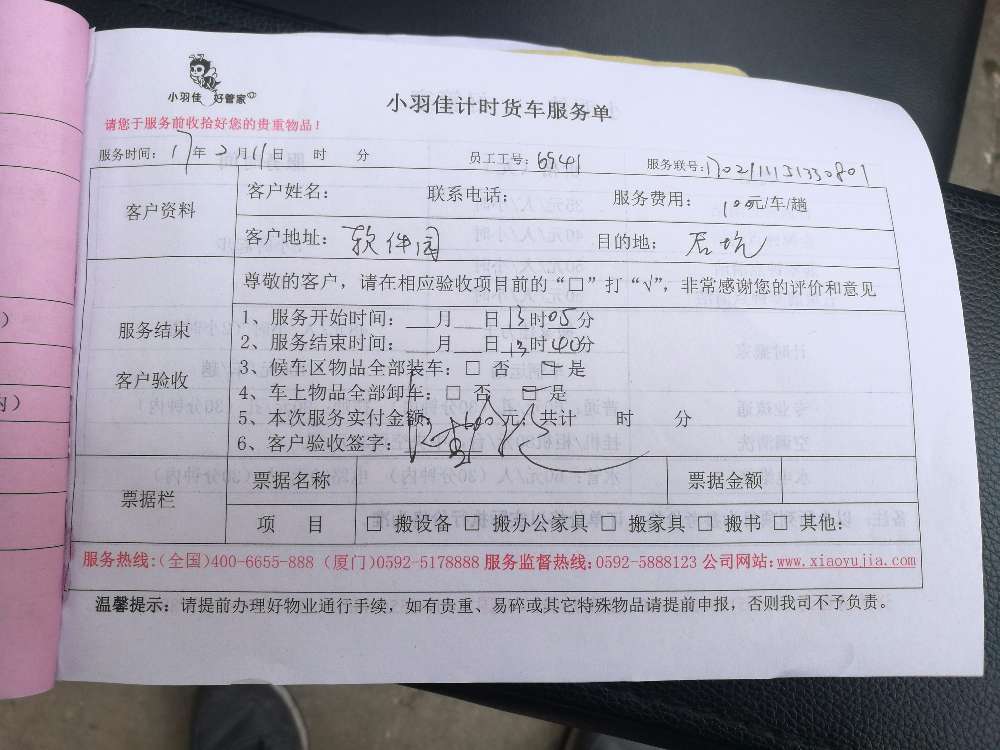 小羽佳 好管家
小羽佳计时货车服务单
请您于服务前收拾好您的贵重物品！
服务时间：17年2月11日 时 分 员工工号：6941 服务联号：
客户资料
客户姓名： 联系电话： 服务费用：100元/车/趟
客户地址：软件园 目的地：后坑
服务结束
客户验收
尊敬的客户，请在相应验收项目前的“□”打“√”，非常感谢您的评价和意见
1、服务开始时间：___月___日13时05分
2、服务结束时间：___月___日13时40分
3、候车区物品全部装车：□ 否 □ 是
4、车上物品全部卸车：□ 否 □ 是
5、本次服务实付金额：100元；共计 时 分
6、客户验收签字：
票据栏
票据名称 票据金额
项 目 □ 搬设备 □ 搬办公家具 □ 搬家具 □ 搬书 □ 其他：
服务热线：(全国)400-6655-888 (厦门)0592-5178888 服务监督热线：0592-5888123 公司网站：www.xiaoyujia.com
温馨提示：请提前办理好物业通行手续，如有贵重、易碎或其它特殊物品请提前申报，否则我司不予负责。